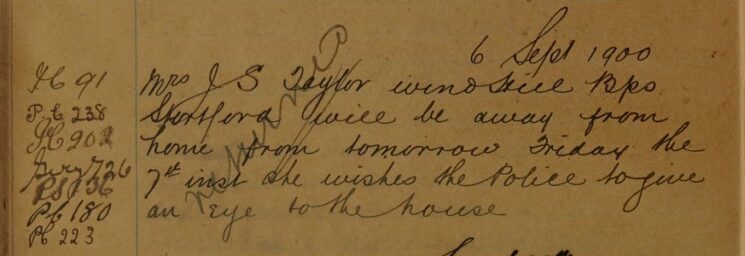 6 Sept 1900
PC 91
Mrs J S Taylor windhill Bps
PC 238
Stortford will be away from
PC 202
home from tomorrow Friday the
726
PS 136
7th inst she wishes the Police to give
PC 180
an Eye to the house
PC 223